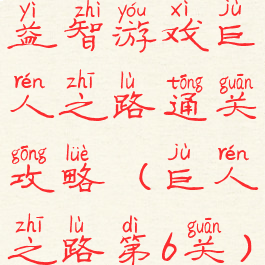 yì zhì yóu xì jù
益智游戏巨
rén zhī lù tōng guān
人之路通关
gōng lüè jù rén
攻略（巨人
zhī lù dì guān
之路第6关）